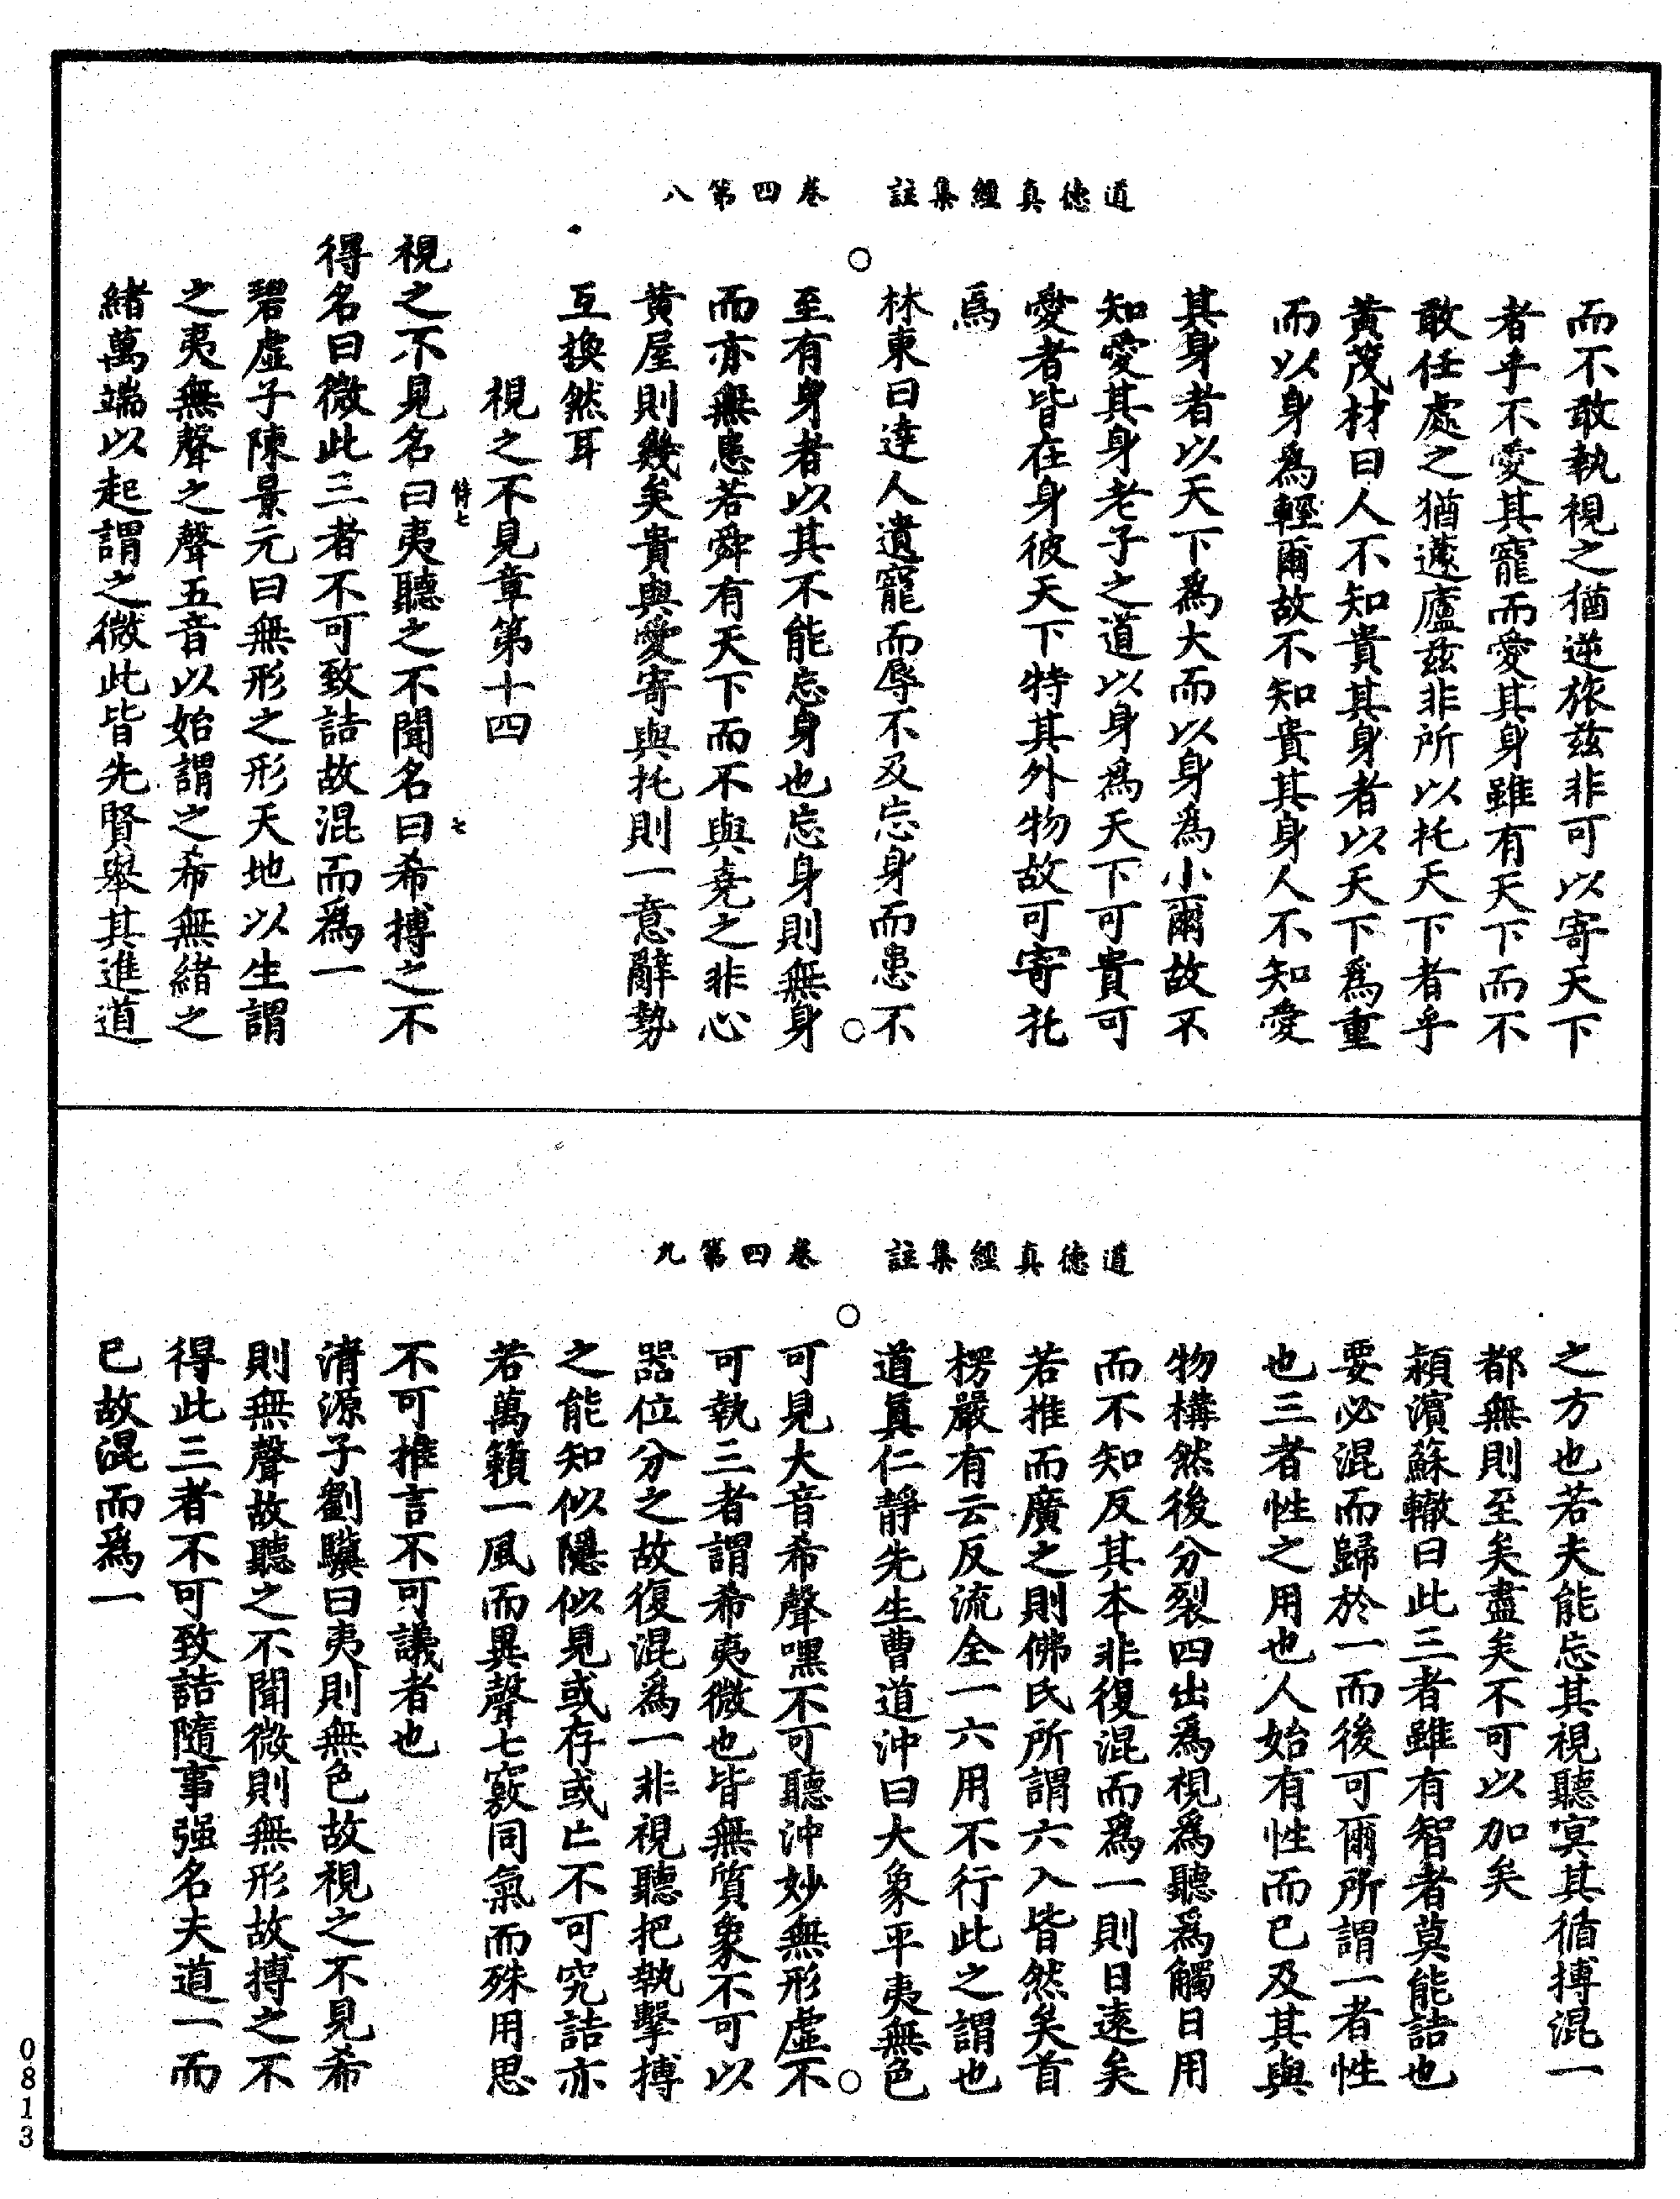 道德真經集註　卷四第八
而不敢執視之猶逆旅茲非可以寄天下
者乎不愛其寵而愛其身雖有天下而不
敢任處之猶蘧廬茲非所以托天下者乎
黃茂材曰人不知貴其身者以天下爲重
而以身爲輕爾故不知貴其身人不知愛
其身者以天下爲大而以身爲小爾故不
知愛其身老子之道以身爲天下可貴可
愛者皆在身彼天下特其外物故可寄托
焉
林東曰達人遺寵而辱不及忘身而患不
至有身者以其不能忘身也忘身則無身
而亦無患若舜有天下而不與堯之非心
黃屋則幾矣貴與愛寄與托則一意辭勢
互換然耳
視之不見章第十四
視之不見名曰夷聽之不聞名曰希搏之不
得名曰微此三者不可致詰故混而爲一
碧虛子陳景元曰無形之形天地以生謂
之夷無聲之聲五音以始謂之希無緒之
緒萬端以起謂之微此皆先賢舉其進道
道德真經集註　卷四第九
之方也若夫能忘其視聽冥其循搏混一
都無則至矣盡矣不可以加矣
潁濱蘇轍曰此三者雖有智者莫能詰也
要必混而歸於一而後可爾所謂一者性
也三者性之用也人始有性而已及其與
物構然後分裂四出爲視爲聽爲觸日用
而不知反其本非復混而爲一則日遠矣
若推而廣之則佛氏所謂六入皆然矣首
楞嚴有云反流全一六用不行此之謂也
道真仁靜先生曹道沖曰大象平夷無色
可見大音希聲嘿不可聽沖妙無形虛不
可執三者謂希夷微也皆無質象不可以
器位分之故復混爲一非視聽把執擊搏
之能知似隱似見或存或亡不可究詰亦
若萬籟一風而異聲七竅同氣而殊用思
不可推言不可議者也
清源子劉驥曰夷則無色故視之不見希
則無聲故聽之不聞微則無形故搏之不
得此三者不可致詰隨事强名夫道一而
已故混而爲一
0813